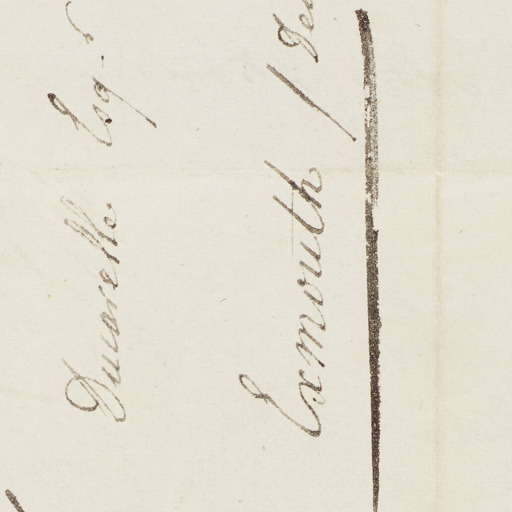 Ducarelle Esqr
Exmouth / De